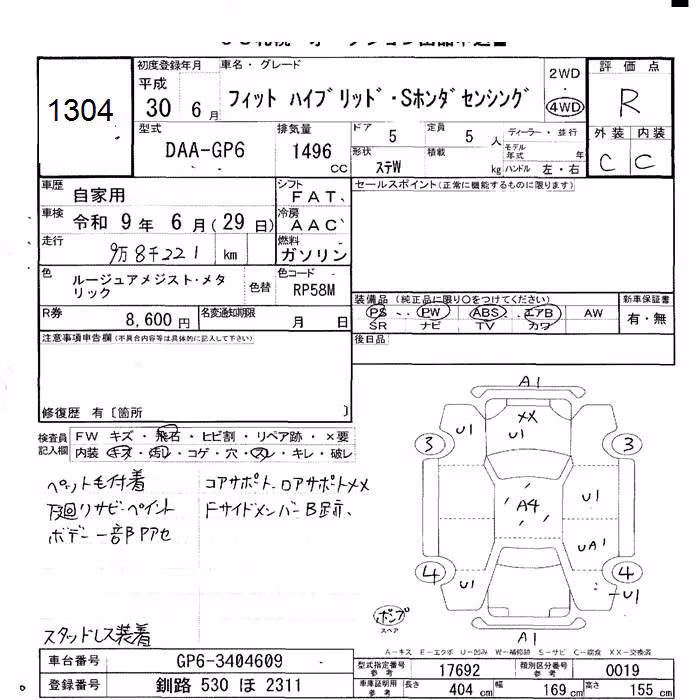 1304
初度登録年月 車名・グレード
平成
30 6月
フィット ハイブリッド・Sホンダセンシング
2WD
4WD
評価点
R
外装 内装
C C
型式
DAA-GP6
排気量
1496
CC
ドア
5
定員
5
人
形状
ステW
積載
kg
ディーラー・並行
モデル年式
年
ハンドル 左・右
車歴
自家用
シフト
FAT、
車検
令和 9 年 6 月(29 日)
冷房
AAC
走行
9万8千221 km
燃料
ガソリン
色
ルージュアメジスト・メタリック
色替
色コード
RP58M
R券
8,600円
名変通知期限
月 日
セールスポイント(正常に機能するものに限ります)
装備品(純正品に限り○をつけてください)
PS PW ABS エアB AW
SR ナビ TV カワ
新車保証書
有・無
後日品
注意事項申告欄(不具合内容等は具体的に記入して下さい)
修復歴 有〔箇所 〕
検査員記入欄
FW キズ・飛石・ヒビ割・リペア跡・×要
内装・キズ・汚レ・コゲ・穴・スレ・キレ・破レ
ペット毛付着
下廻りサビペイント
ボデー一部BPアセ
コアサポート-ロアサポートXX
スタッドレス装着
A1
U1
XX
U1
3
3
A4
U1
UA1
4
4
U1
U1
A1
ポンプ
スペア
A-キズ E-エクボ U-凹み W-補修跡 S-サビ C-腐食 XX-交換済
車台番号
GP6-3404609
登録番号
釧路 530 ほ 2311
型式指定番号 参考
17692
類別区分番号 参考
0019
車庫証明用 参考
長さ
404 cm
幅
169 cm
高さ
155 cm